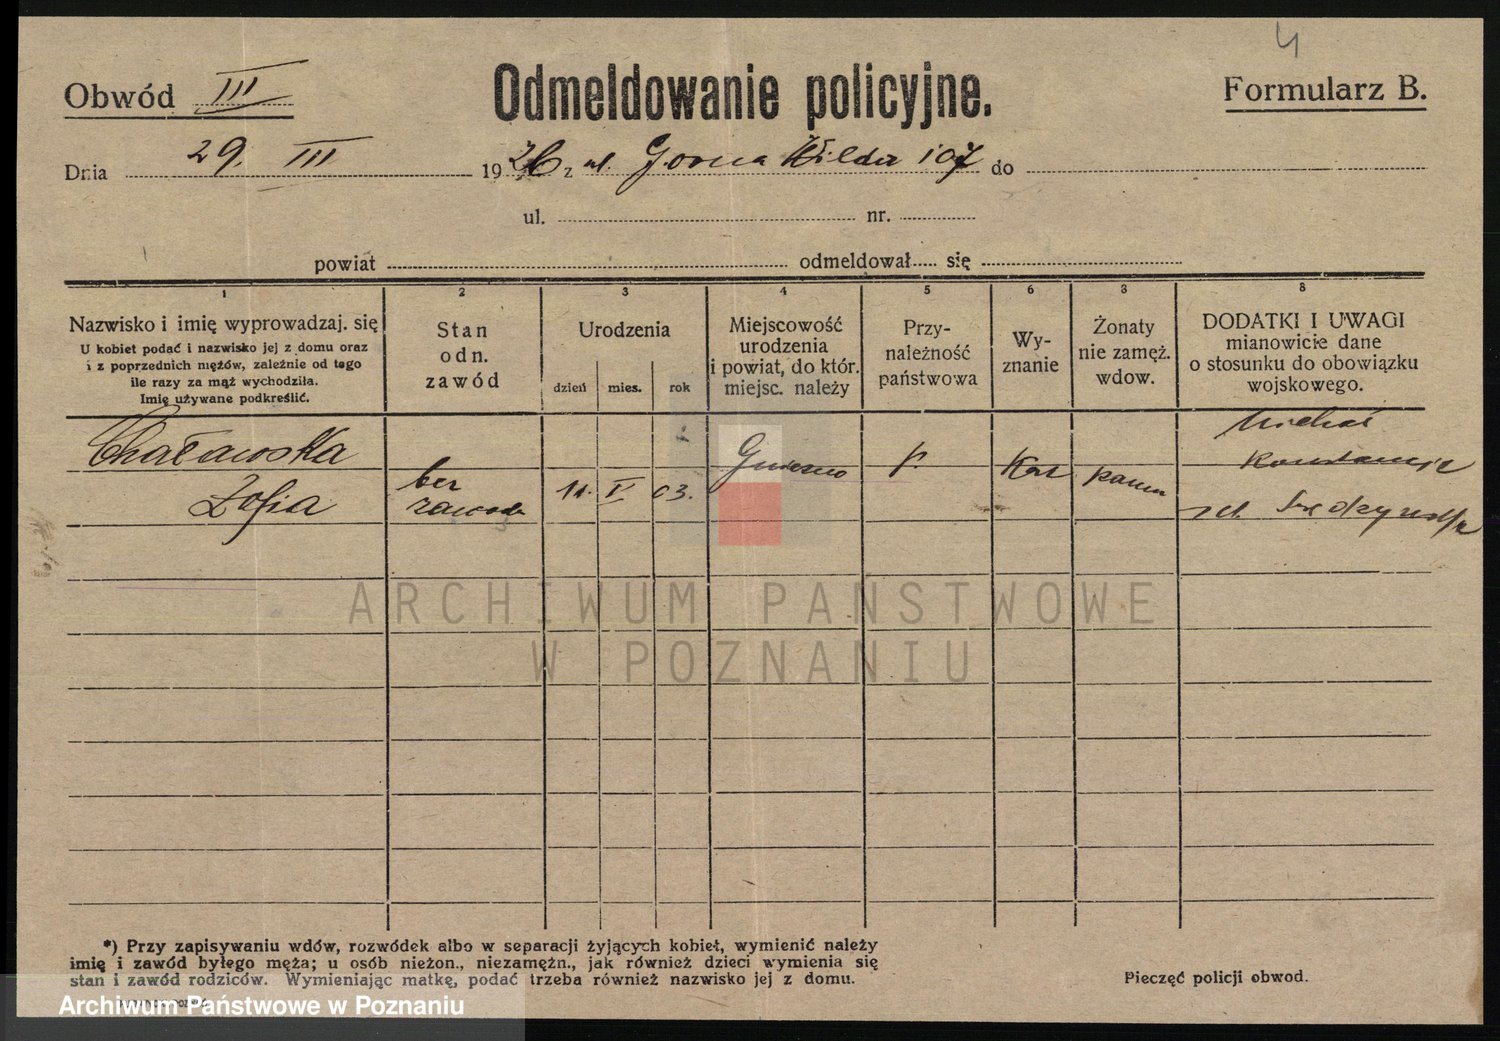 4
Obwód III
Odmeldowanie policyjne.
Formularz B.
Dnia 29. III 1926 z ul. Gorna Wilda 107 do
ul. nr.
powiat odmeldował się
1 2 3 4 5 6 3 8
Nazwisko i imię wyprowadzaj. się
U kobiet podać i nazwisko jej z domu oraz
i z poprzednich mężów, zależnie od tego
ile razy za mąż wychodziła.
Imię używane podkreślić.
Stan
odn.
zawód
Urodzenia
dzień mies. rok
Miejscowość
urodzenia
i powiat, do któr.
miejsc. należy
Przy-
należność
państwowa
Wy-
znanie
Żonaty
nie zamęż.
wdow.
DODATKI I UWAGI
mianowicie dane
o stosunku do obowiązku
wojskowego.
Chaławska
Zofia
bez
zawodu
11. V 03.
Gniezno
p.
Kat
panna
Michał
Konstancja
ARCHIWUM PAŃSTWOWE
W POZNANIU
*) Przy zapisywaniu wdów, rozwódek albo w separacji żyjących kobiet, wymienić należy
imię i zawód byłego męża; u osób nieżon., niezamężn., jak również dzieci wymienia się
stan i zawód rodziców. Wymieniając matkę, podać trzeba również nazwisko jej z domu.
Pieczęć policji obwod.
Archiwum Państwowe w Poznaniu